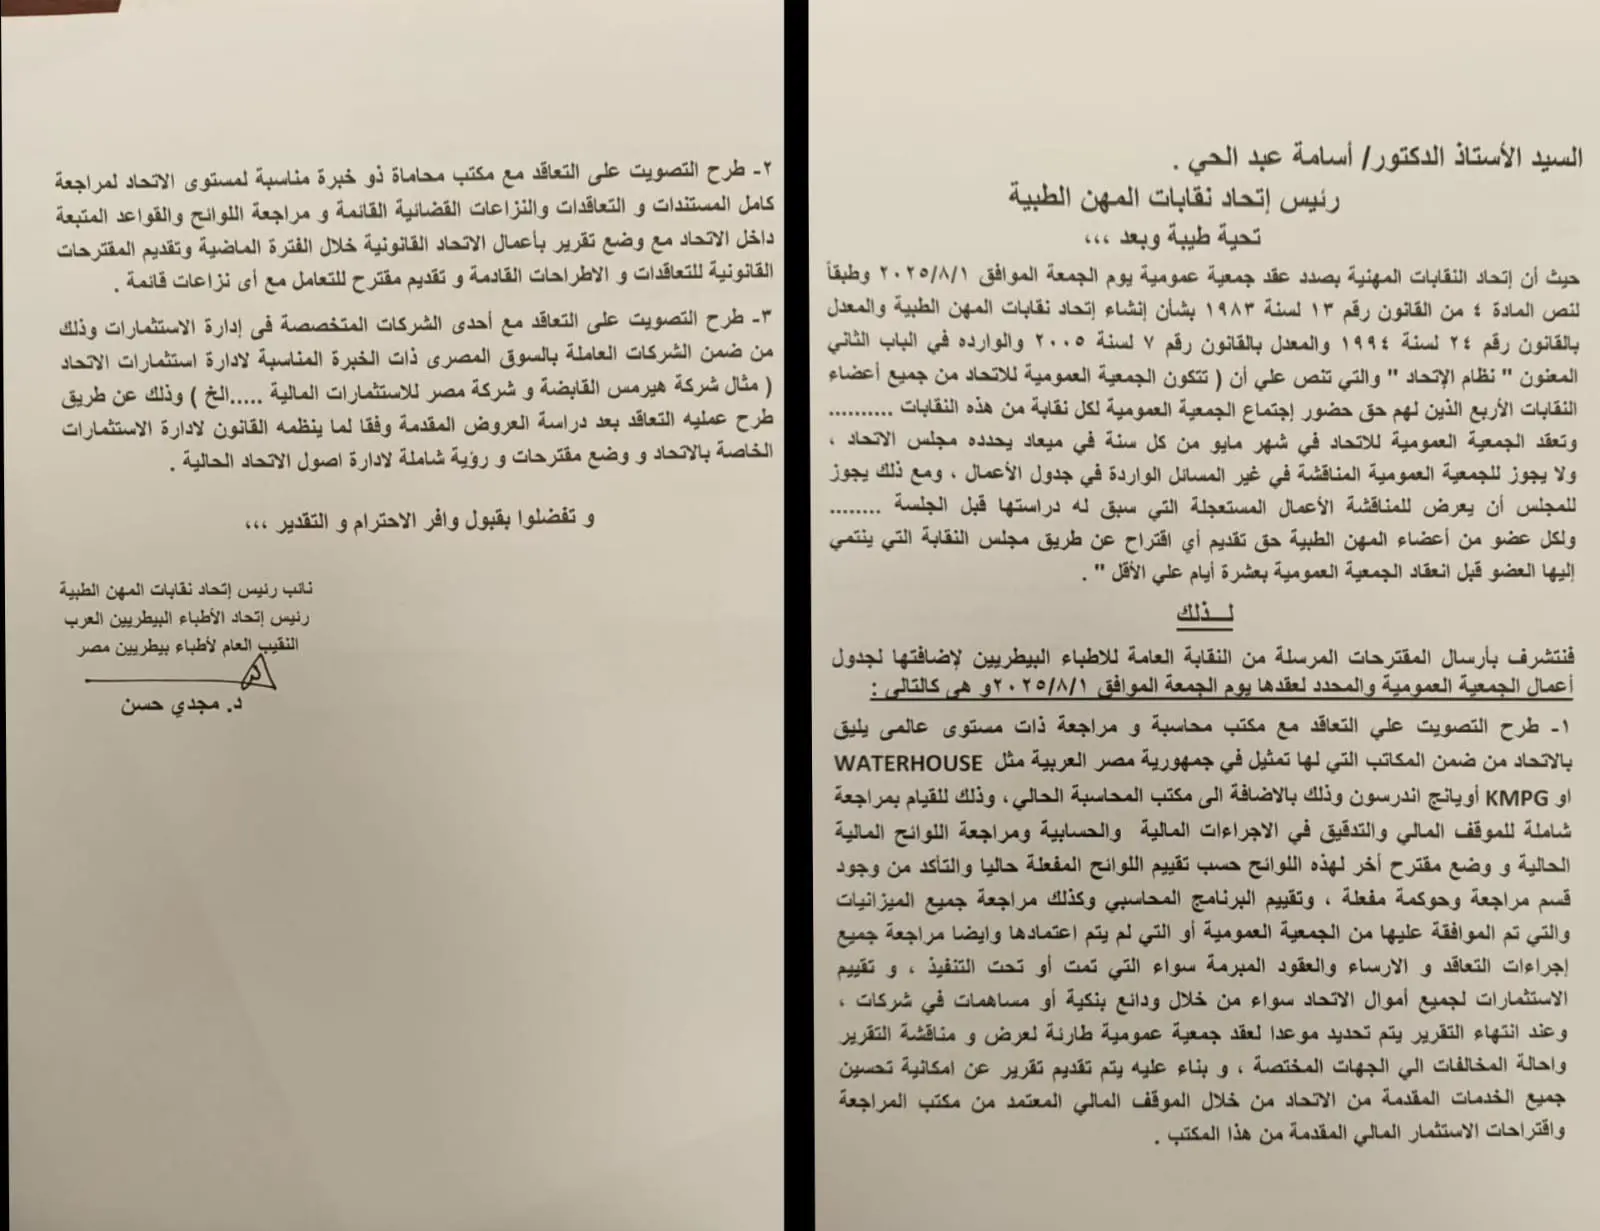 السيد الأستاذ الدكتور/ أسامة عبد الحي .
رئيس إتحاد نقابات المهن الطبية
تحية طيبة وبعد ،،،
حيث أن إتحاد النقابات المهنية بصدد عقد جمعية عمومية يوم الجمعة الموافق ٢٠٢٥/٨/١ وطبقاً
لنص المادة ٤ من القانون رقم ١٣ لسنة ١٩٨٣ بشأن إنشاء إتحاد نقابات المهن الطبية والمعدل
بالقانون رقم ٢٤ لسنة ١٩٩٤ والمعدل بالقانون رقم ٧ لسنة ٢٠٠٥ والوارده في الباب الثاني
المعنون " نظام الإتحاد " والتي تنص علي أن ( تتكون الجمعية العمومية للاتحاد من جميع أعضاء
النقابات الأربع الذين لهم حق حضور إجتماع الجمعية العمومية لكل نقابة من هذه النقابات ..........
وتعقد الجمعية العمومية للاتحاد في شهر مايو من كل سنة في ميعاد يحدده مجلس الاتحاد ،
ولا يجوز للجمعية العمومية المناقشة في غير المسائل الواردة في جدول الأعمال ، ومع ذلك يجوز
للمجلس أن يعرض للمناقشة الأعمال المستعجلة التي سبق له دراستها قبل الجلسة ........
ولكل عضو من أعضاء المهن الطبية حق تقديم أي اقتراح عن طريق مجلس النقابة التي ينتمي
إليها العضو قبل انعقاد الجمعية العمومية بعشرة أيام علي الأقل " .
لـــذلك
فنتشرف بأرسال المقترحات المرسلة من النقابة العامة للاطباء البيطريين لإضافتها لجدول
أعمال الجمعية العمومية والمحدد لعقدها يوم الجمعة الموافق ٢٠٢٥/٨/١ و هى كالتالى :
١- طرح التصويت علي التعاقد مع مكتب محاسبة و مراجعة ذات مستوى عالمى يليق
بالاتحاد من ضمن المكاتب التي لها تمثيل في جمهورية مصر العربية مثل WATERHOUSE
او KMPG أويانج اندرسون وذلك بالاضافة الى مكتب المحاسبة الحالي، وذلك للقيام بمراجعة
شاملة للموقف المالي والتدقيق في الاجراءات المالية والحسابية ومراجعة اللوائح المالية
الحالية و وضع مقترح أخر لهذه اللوائح حسب تقييم اللوائح المفعلة حاليا والتأكد من وجود
قسم مراجعة وحوكمة مفعلة ، وتقييم البرنامج المحاسبي وكذلك مراجعة جميع الميزانيات
والتي تم الموافقة عليها من الجمعية العمومية أو التي لم يتم اعتمادها وايضا مراجعة جميع
إجراءات التعاقد و الارساء والعقود المبرمة سواء التي تمت أو تحت التنفيذ ، و تقييم
الاستثمارات لجميع أموال الاتحاد سواء من خلال ودائع بنكية أو مساهمات في شركات ،
وعند انتهاء التقرير يتم تحديد موعدا لعقد جمعية عمومية طارئة لعرض و مناقشة التقرير
واحالة المخالفات الي الجهات المختصة ، و بناء عليه يتم تقديم تقرير عن امكانية تحسين
جميع الخدمات المقدمة من الاتحاد من خلال الموقف المالي المعتمد من مكتب المراجعة
واقتراحات الاستثمار المالي المقدمة من هذا المكتب .
٢- طرح التصويت على التعاقد مع مكتب محاماة ذو خبرة مناسبة لمستوى الاتحاد لمراجعة
كامل المستندات و التعاقدات والنزاعات القضائية القائمة و مراجعة اللوائح والقواعد المتبعة
داخل الاتحاد مع وضع تقرير بأعمال الاتحاد القانونية خلال الفترة الماضية وتقديم المقترحات
القانونية للتعاقدات و الاطراحات القادمة و تقديم مقترح للتعامل مع أى نزاعات قائمة .
٣- طرح التصويت على التعاقد مع أحدى الشركات المتخصصة فى إدارة الاستثمارات وذلك
من ضمن الشركات العاملة بالسوق المصرى ذات الخبرة المناسبة لادارة استثمارات الاتحاد
( مثال شركة هيرمس القابضة و شركة مصر للاستثمارات المالية .....الخ ) وذلك عن طريق
طرح عمليه التعاقد بعد دراسة العروض المقدمة وفقا لما ينظمه القانون لادارة الاستثمارات
الخاصة بالاتحاد و وضع مقترحات و رؤية شاملة لادارة اصول الاتحاد الحالية .
و تفضلوا بقبول وافر الاحترام و التقدير ،،،
نائب رئيس إتحاد نقابات المهن الطبية
رئيس إتحاد الأطباء البيطريين العرب
النقيب العام لأطباء بيطريين مصر
د. مجدي حسن